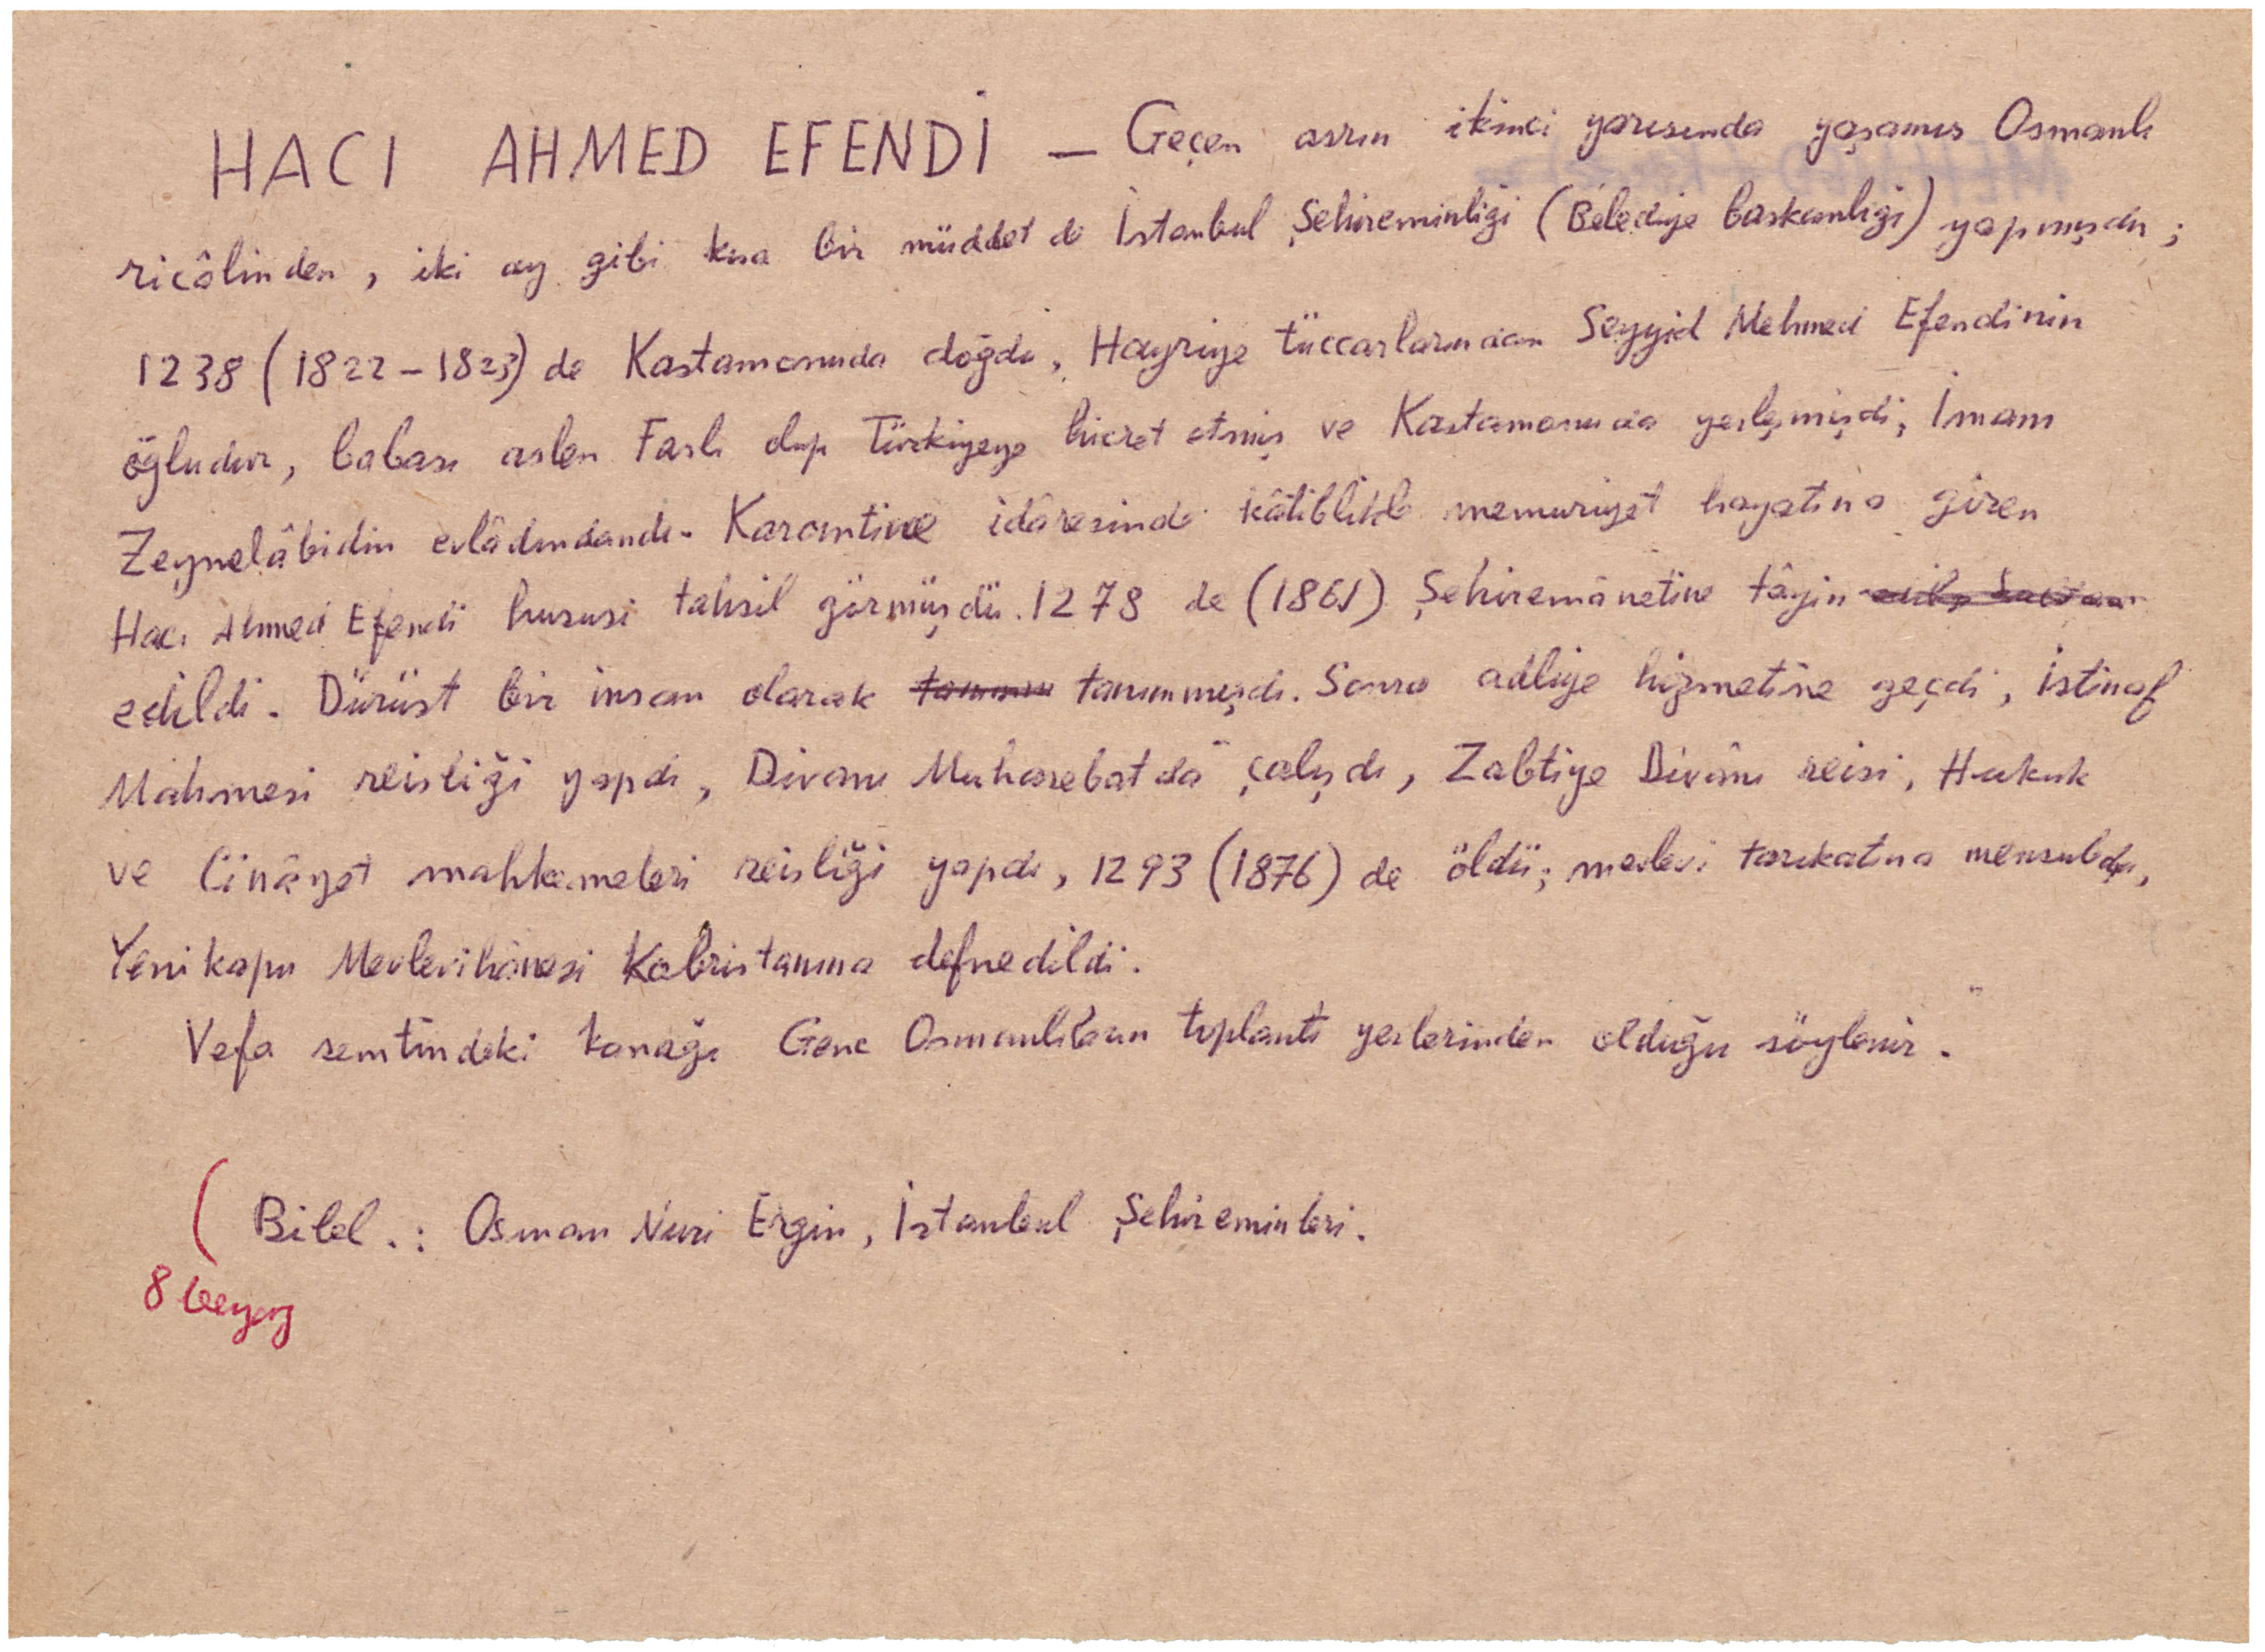 HACI AHMED EFENDİ — Geçen asrın ikinci yarısında yaşamış Osmanlı
ricâlinden, iki ay gibi kısa bir müddet de İstanbul Şehireminliği (Belediye başkanlığı) yapmışdır;
1238 (1822-1823) de Kastamonuda doğdu, Hayriye tüccarlarından Seyyid Mehmed Efendinin
oğludur, babası aslen Faslı olup Türkiyeye hicret etmiş ve Kastamonuda yerleşmişdi; İmam
Zeynelâbidin evlâdındandı. Karantine idâresinde kâtiblikle memuriyet hayatına giren
Hacı Ahmed Efendi hususi tahsil görmüşdü. 1278 de (1861) Şehiremânetine tâyin
edildi. Dürüst bir insan olarak tanınmışdı. Sonra adliye hizmetine geçdi, İstinaf
Mahmesi reisliği yapdı, Divanı Muhasebatda çalışdı, Zabtiye Divânı reisi, Hukuk
ve Cinâyet mahkemeleri reisliği yapdı, 1293 (1876) de öldü; mevlevi tarikatına mensubdu,
Yenikapu Mevlevihânesi Kabristanına defnedildi.
Vefa semtindeki konağı Genc Osmanlıların toplantı yerlerinden olduğu söylenir.
Bibl.: Osman Nuri Ergin, İstanbul Şehireminleri.
8 beyaz